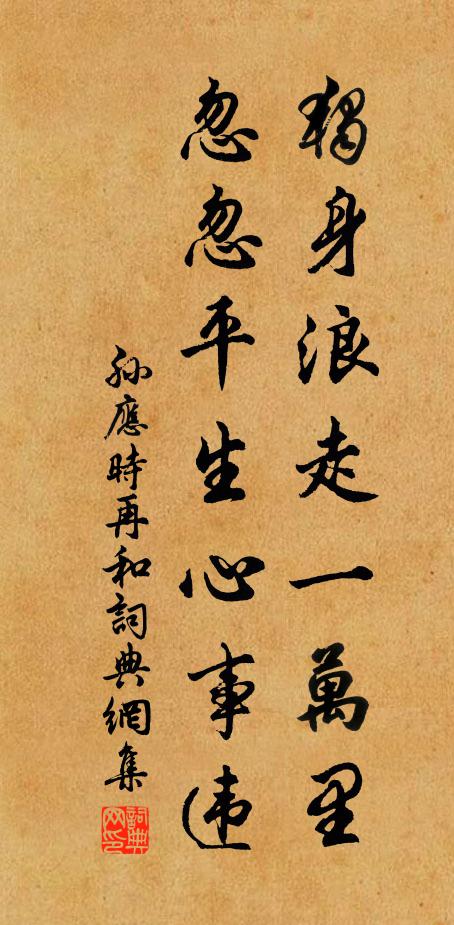 獨身浪走一萬里
忽忽平生心事违
孙應時再和詞典網集
詞典
网印